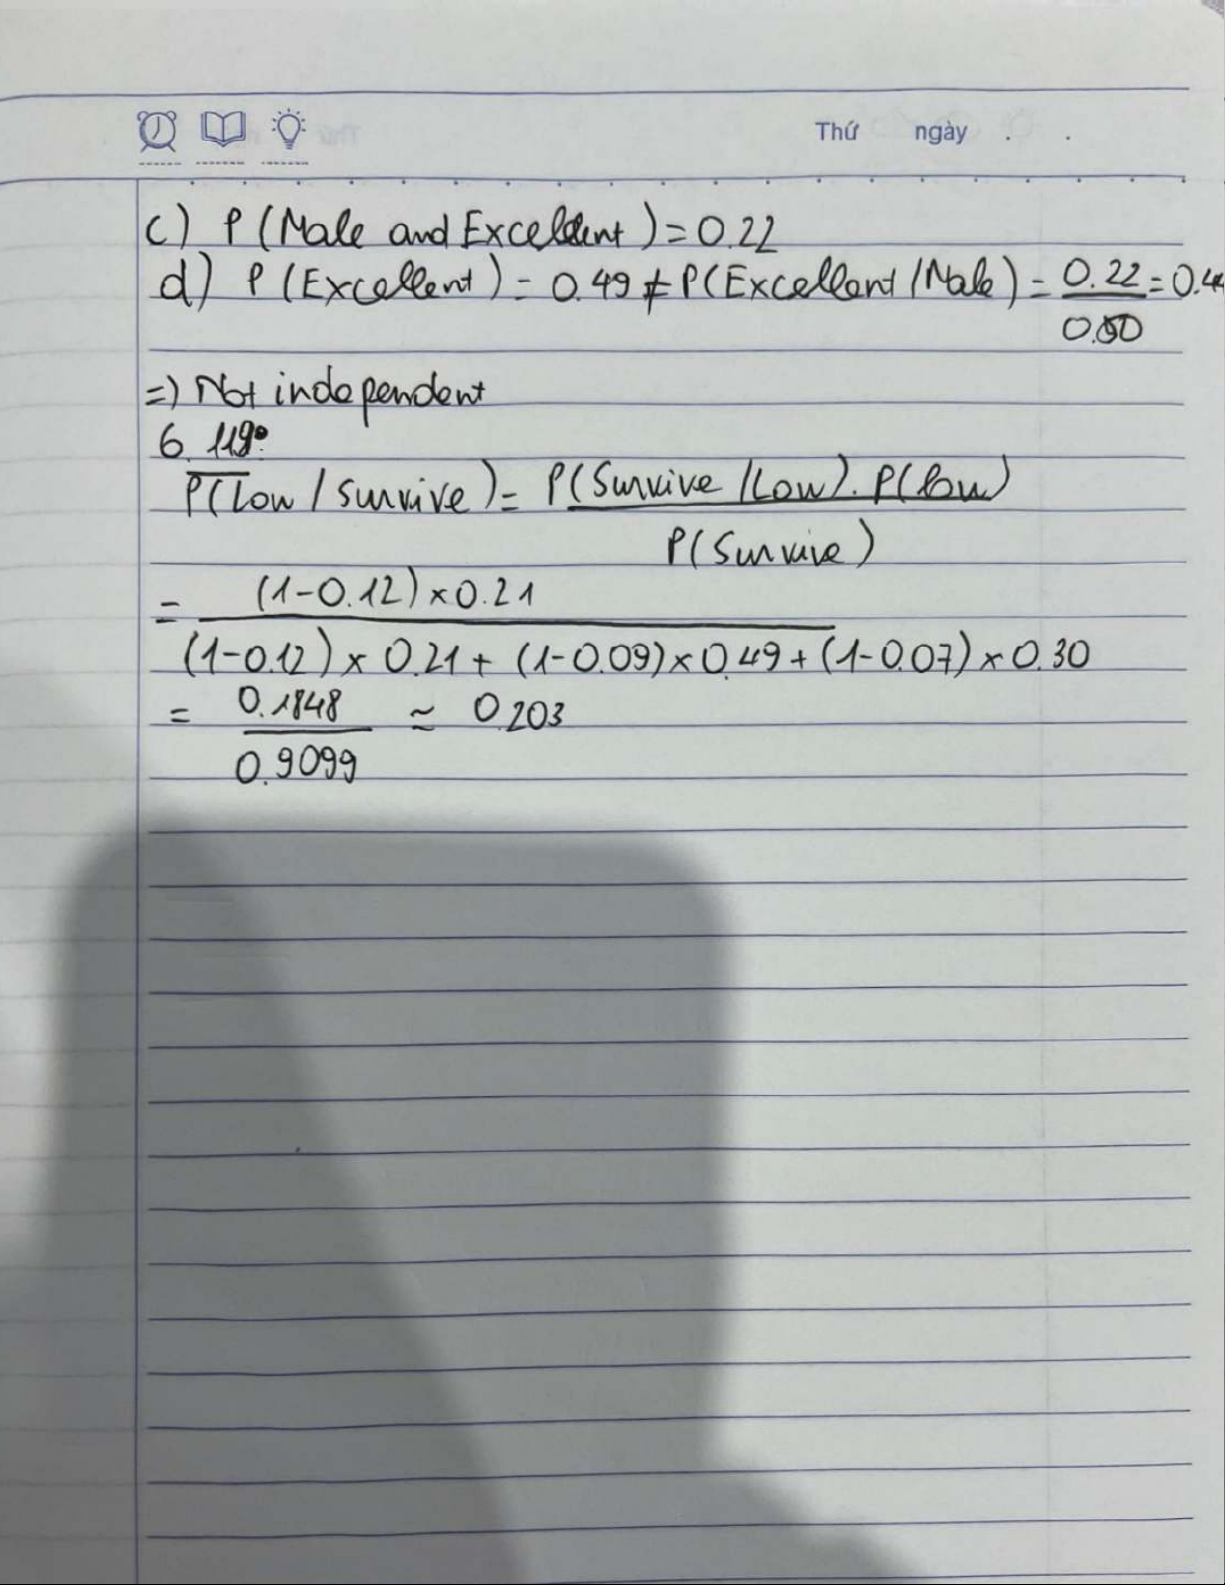 Thứ ngày . .
c) P (Male and Excellent) = 0.22
d) P (Excellent) = 0.49 ≠ P(Excellent / Male) = 0.22 = 0.44
0.50
=) Not independent
6.119:
P(Low / survive) = P(Survive / Low). P(low)
P(Survive)
= (1-0.12) × 0.21
(1-0.12) × 0.21 + (1-0.09) × 0.49 + (1-0.07) × 0.30
= 0.1848 ≈ 0.203
0.9099